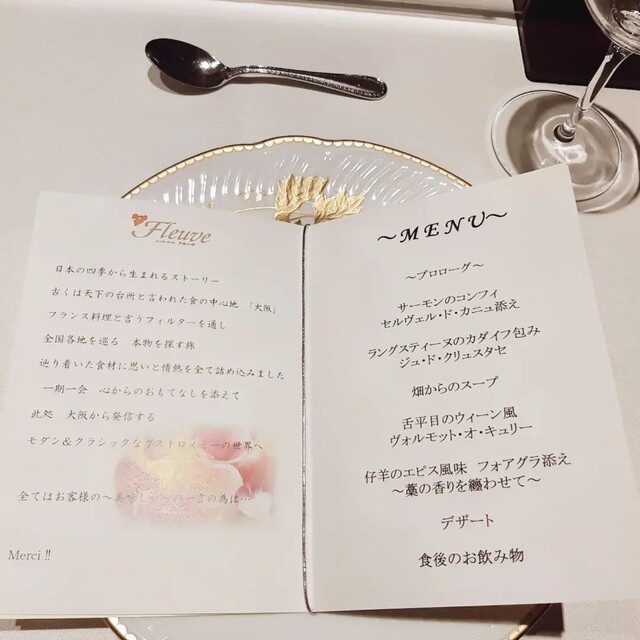 Fleuve
日本の四季から生まれるストーリー
古くは天下の台所と言われた食の中心地 「大阪」
フランス料理と言うフィルターを通し
全国各地を巡る 本物を探す旅
辿り着いた食材に思いと情熱を全て詰め込みました
一期一会 心からのおもてなしを添えて
此処 大阪から発信する
モダン&クラシックなガストロノミーの世界へ
全てはお客様の～美味しい～の一言の為に…
Merci !!
～MENU～
～プロローグ～
サーモンのコンフィ
セルヴェル・ド・カニュ添え
ラングスティーヌのカダイフ包み
ジュ・ド・クリュスタセ
畑からのスープ
舌平目のウィーン風
ヴォルモット・オ・キュリー
仔羊のエピス風味 フォアグラ添え
～藁の香りを纏わせて～
デザート
食後のお飲み物